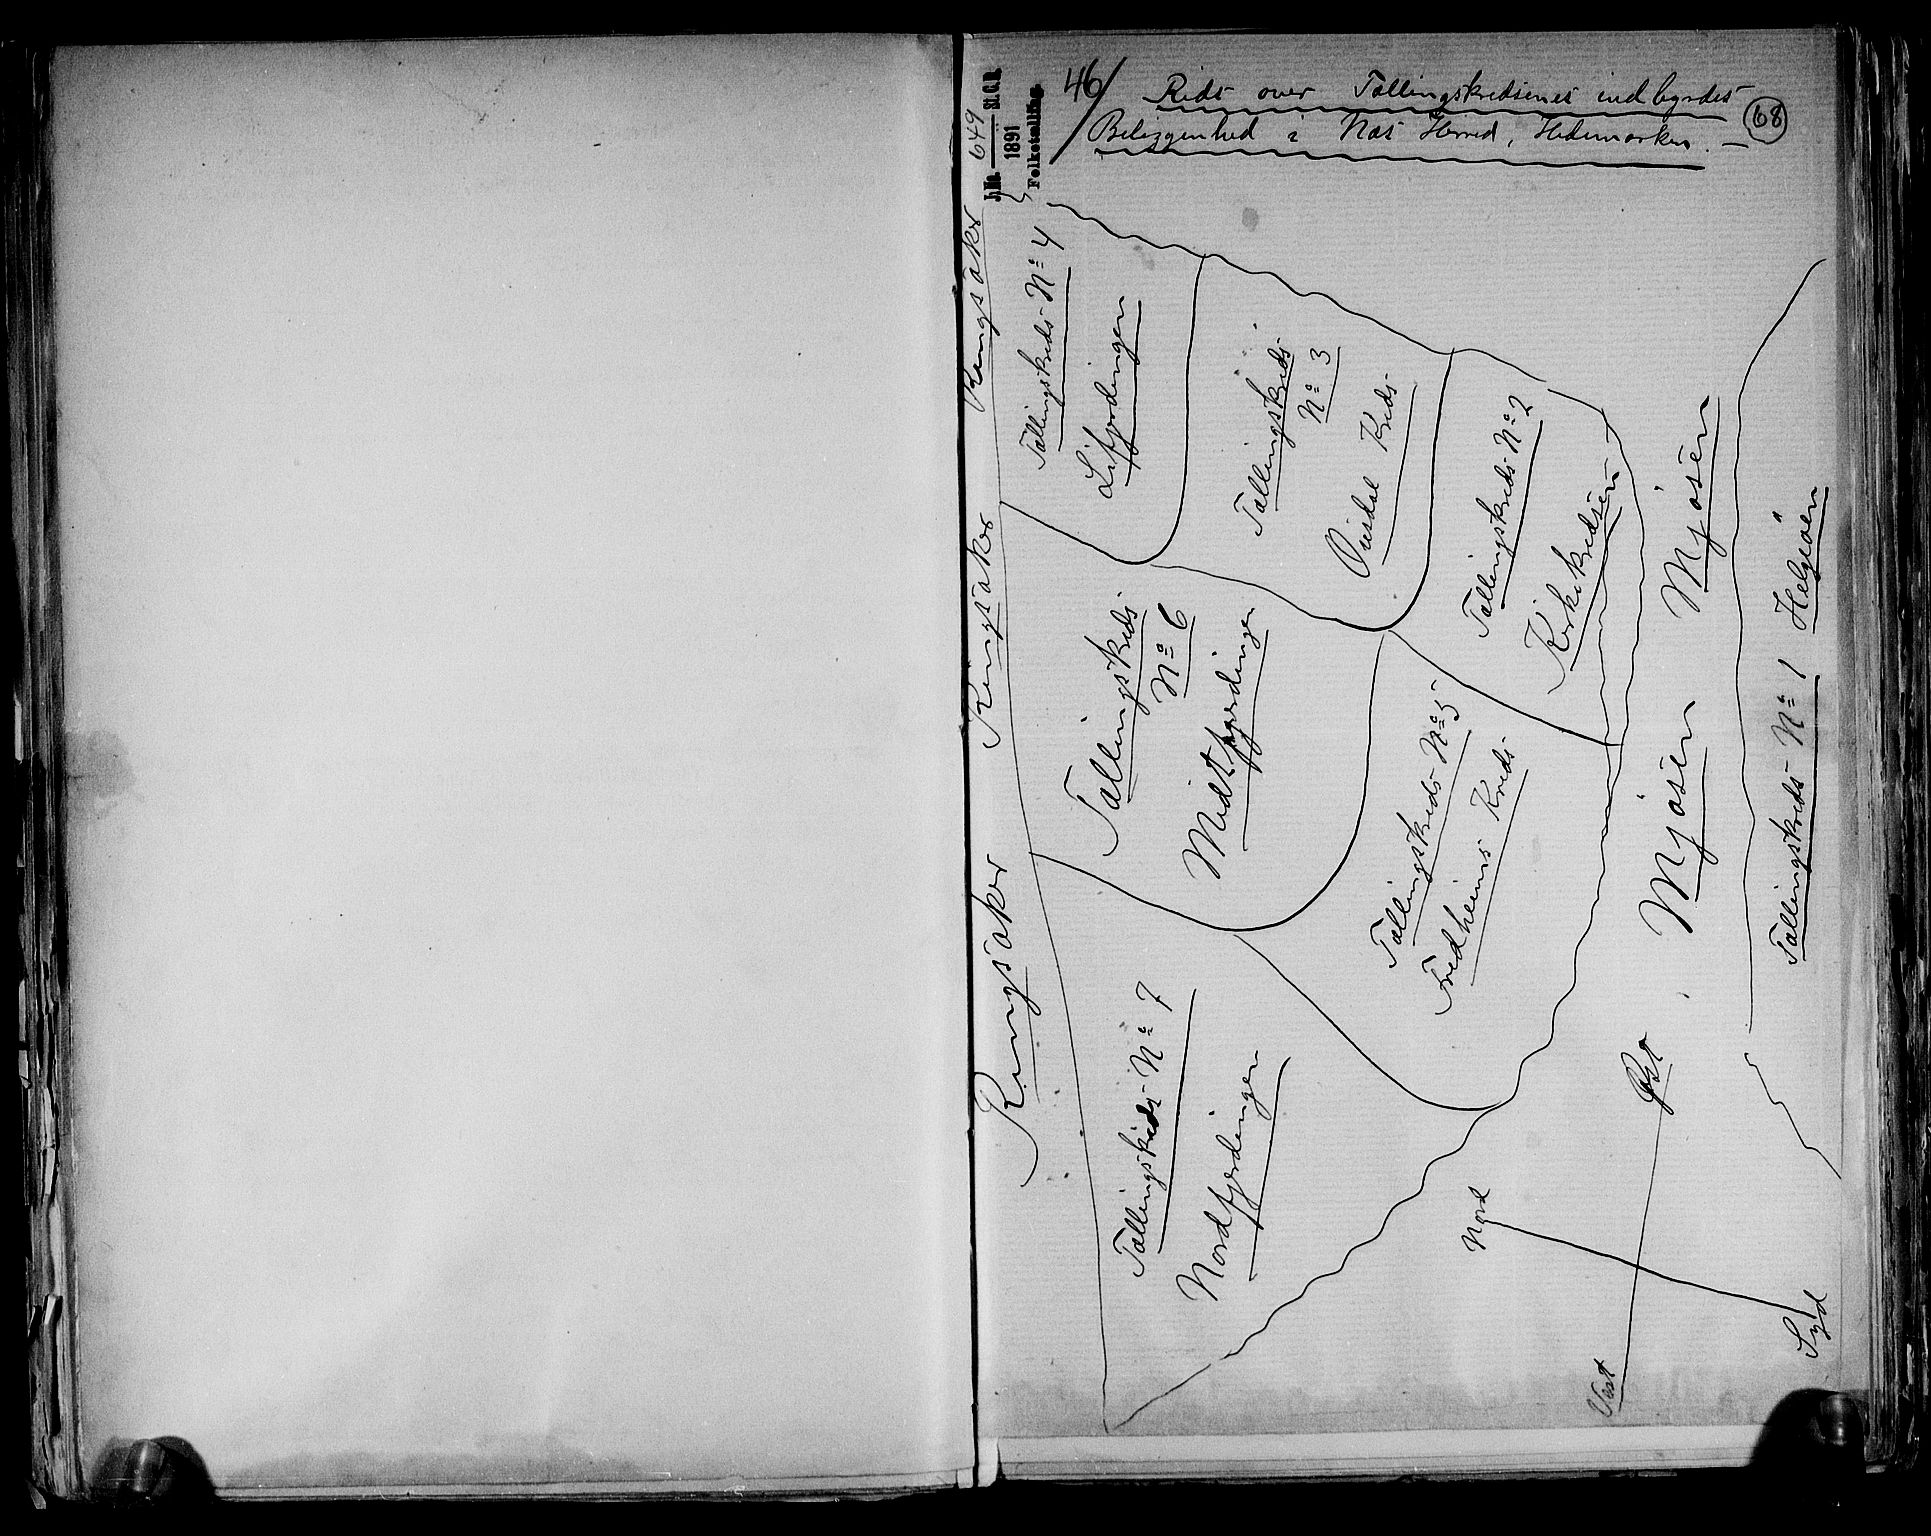 46/
Rids over Tællingskredsenes indbyrdes
Beliggenhed i Næs Herred, Hedemarken. —
68
J. No. 649 St. C. B.
1891
Folketælling.
Ringsaker
Ringsaker
Ringsaker
Tællingskreds No 4
Lifjerdingen
Tællingskreds
No 3
Kreds
Tællingskreds No 2
Kirkekredsen
Tællingskreds
No 6
Midtfjerdingen
Tællingskreds No 5
Fredheims Kreds
Tællingskreds No 7
Nordfjerdingen
Mjøsen
Mjøsen
Tællingskreds No 1 Helgøen
Nord
Øst
Vest
Syd